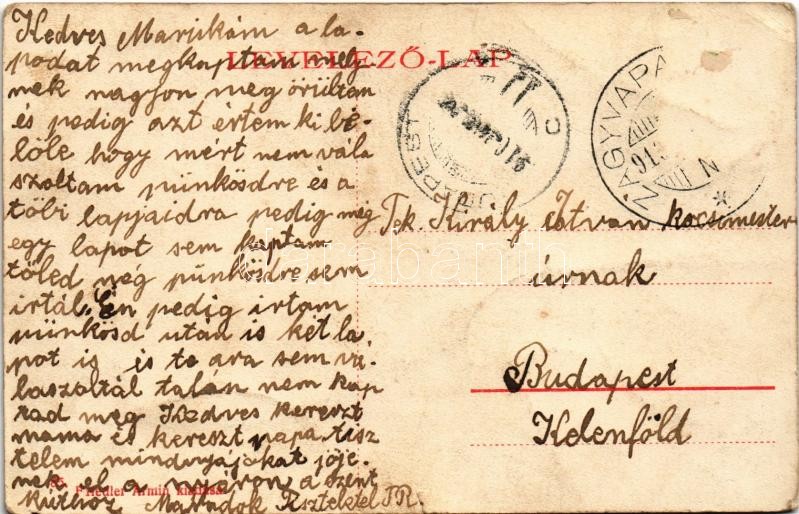 Kedves Marjikám a la-
podat megkaptam mely-
nek nagyon meg örültem
és pedig azt értem ki be-
löle hogy mért nem vála
szoltam pünkösdre és a
töbi lapjaidra pedig még
egy lapot sem kaptam
töled meg pünkösdre sem
irtál. Én pedig irtam
pünkösd után is két la-
pot is és te ara sem vá-
laszoltál talán nem kap
tad meg Kedves kereszt
mama és kereszt papa tisz
telem mindnyájokat jöje-
nek el a nyáron a szent
kúthoz Maradok Tisztelettel T.R.
LEVELEZŐ-LAP
Friedler Ármin kiadása
ZAGYVAPA
913
N
Tek. Király István kocsimester
úrnak
Budapest
Kelenföld
darabanth